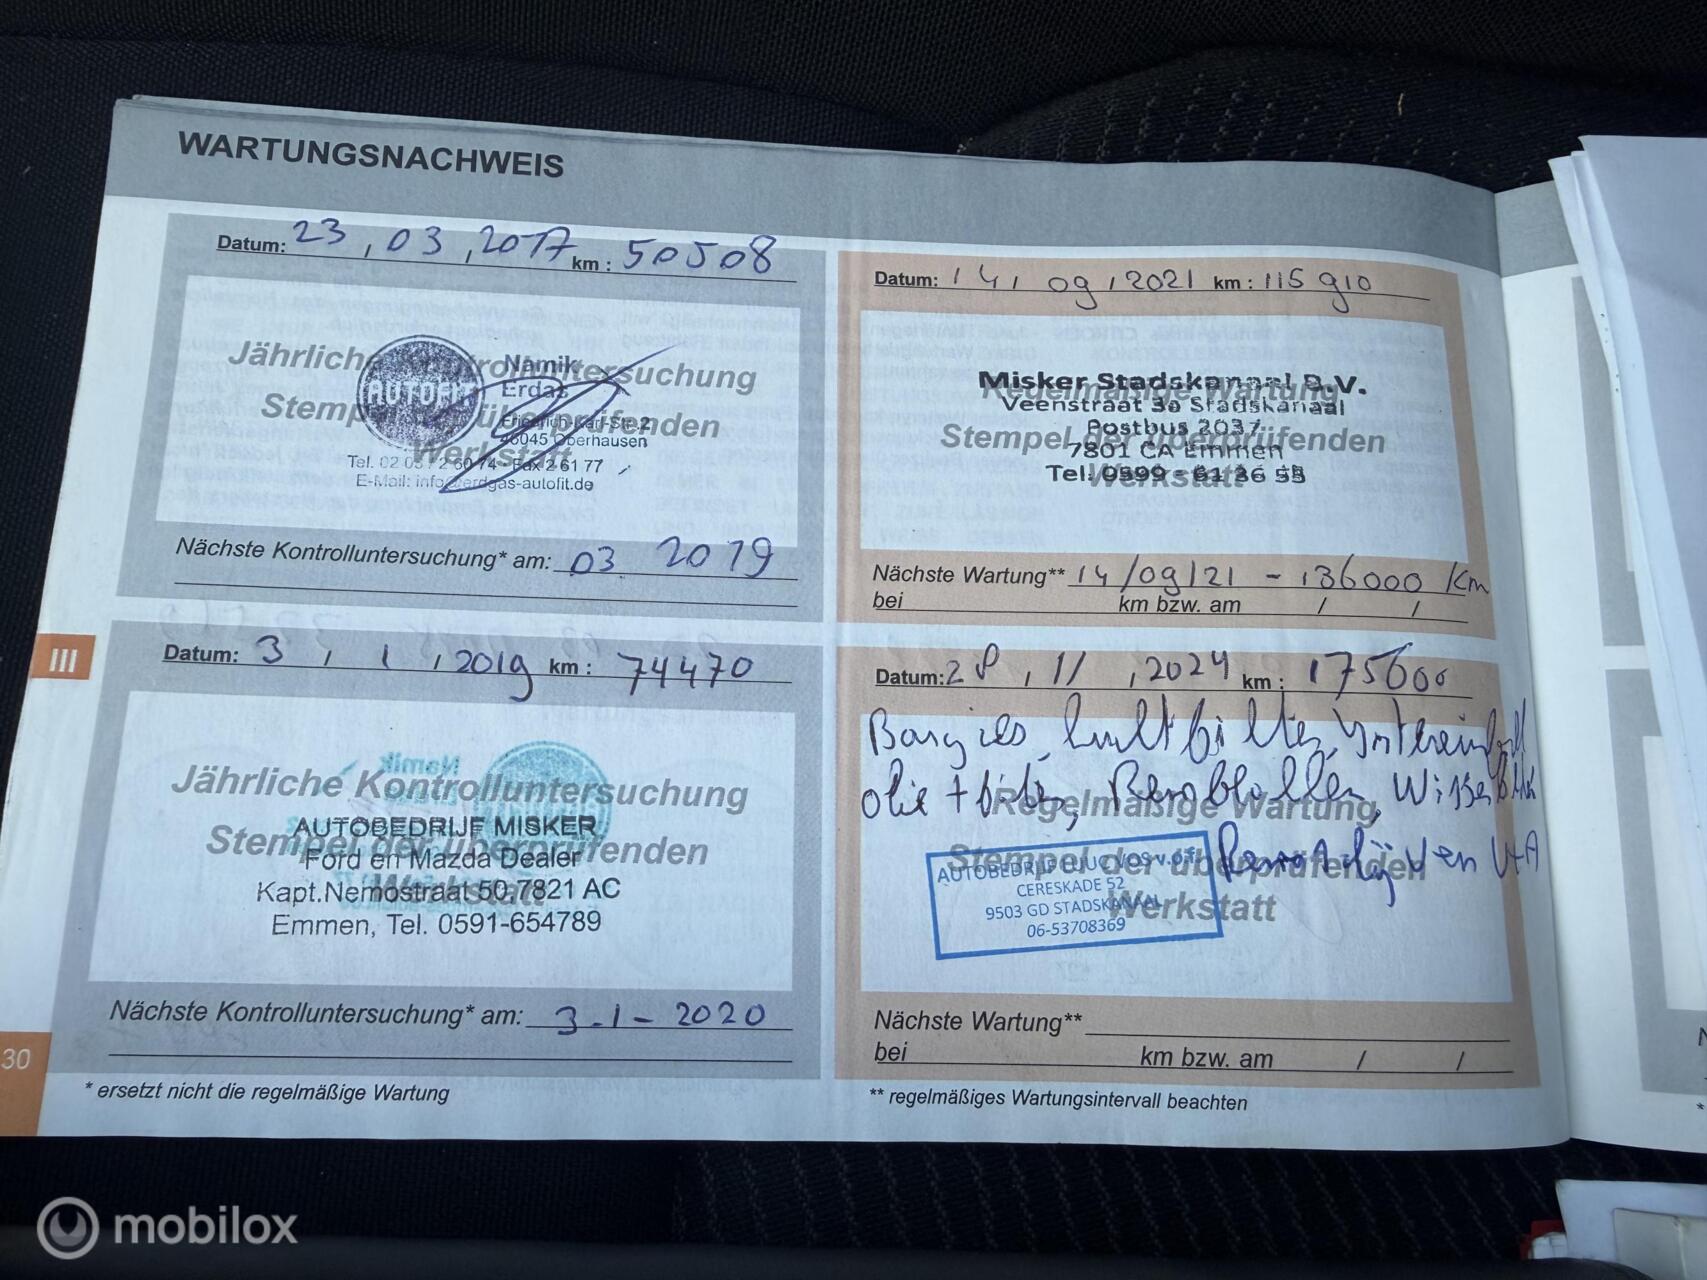 WARTUNGSNACHWEIS
Datum: 23, 03, 2017 km : 50508
Jährliche Kontrolluntersuchung
Stempel der überprüfenden
Werkstatt
AUTOFIT
Namik
Erdas
Friedrich-Karl-Str. 2
46045 Oberhausen
Tel. 02 08 / 2 60 74 - Fax 2 61 77
E-Mail: info@erdgas-autofit.de
Nächste Kontrolluntersuchung* am: 03 2019
III
Datum: 3, 1, 2019 km : 74470
Jährliche Kontrolluntersuchung
Stempel der überprüfenden
Werkstatt
AUTOBEDRIJF MISKER
Ford en Mazda Dealer
Kapt.Nemostraat 50, 7821 AC
Emmen, Tel. 0591-654789
Nächste Kontrolluntersuchung* am: 3-1-2020
30
* ersetzt nicht die regelmäßige Wartung
Datum: 14, 09, 2021 km : 115 910
Regelmäßige Wartung
Stempel der überprüfenden
Werkstatt
Misker Stadskanaal B.V.
Veenstraat 3a Stadskanaal
Postbus 2037
7801 CA Emmen
Tel. 0599 - 61 36 55
Nächste Wartung** 14/09/21 - 136000 km
bei km bzw. am / /
Datum: 28, 11, 2024 km : 175600
Bougies, luchtfilter, Interieurfilter
olie + filter, Remblokken, Wisserblad
Remschijven VA
Regelmäßige Wartung
Stempel der überprüfenden
Werkstatt
CERESKADE 52
9503 GD STADSKANAAL
06-53708369
Nächste Wartung**
bei km bzw. am / /
** regelmäßiges Wartungsintervall beachten
mobilox